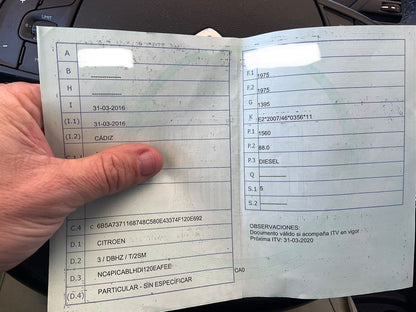 A
B
H
I 31-03-2016
(I.1) 31-03-2016
(I.2) CÁDIZ
C.4 C 6B5A7371168748C580E43374F120E692
D.1 CITROEN
D.2 3 / DBHZ / T/2SM
D.3 NC4PICABLHDI120EAFEE
(D.4) PARTICULAR - SIN ESPECIFICAR
F.1 1975
F.2 1975
G 1395
K E2*2007/46*0356*11
P.1 1560
P.2 88.0
P.3 DIESEL
Q
S.1 5
S.2
OBSERVACIONES:
Documento válido si acompaña ITV en vigor
Próxima ITV: 31-03-2020
CA0